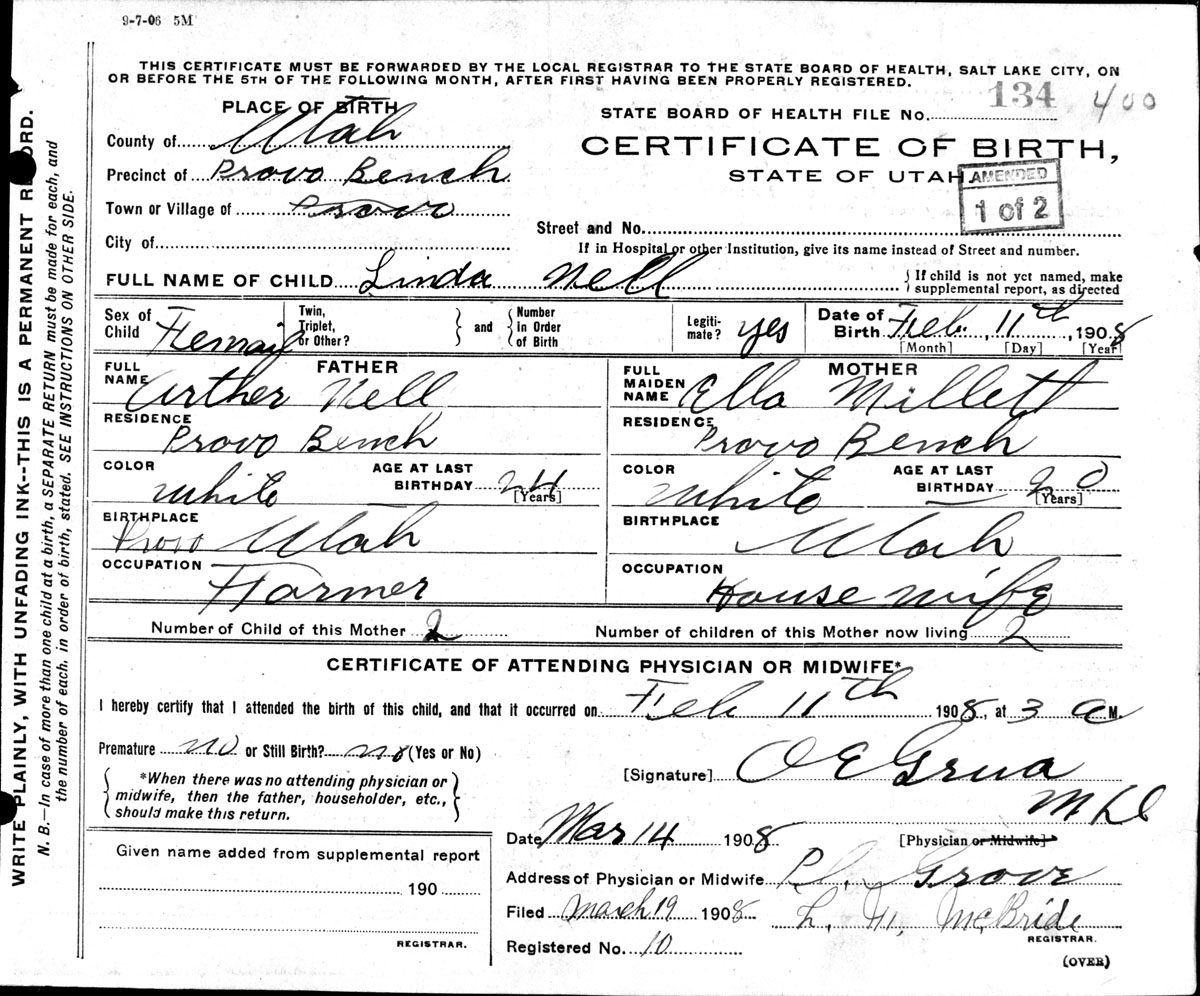 9-7-06 5M
THIS CERTIFICATE MUST BE FORWARDED BY THE LOCAL REGISTRAR TO THE STATE BOARD OF HEALTH, SALT LAKE CITY, ON
OR BEFORE THE 5TH OF THE FOLLOWING MONTH, AFTER FIRST HAVING BEEN PROPERLY REGISTERED.
134 400
PLACE OF BIRTH
STATE BOARD OF HEALTH FILE No.
County of Utah
CERTIFICATE OF BIRTH,
Precinct of Provo Bench
STATE OF UTAH
AMENDED
1 of 2
Town or Village of Provo
Street and No.
City of
If in Hospital or other Institution, give its name instead of Street and number.
FULL NAME OF CHILD Linda Nell
If child is not yet named, make
supplemental report, as directed
Sex of
Child Femail
Twin,
Triplet,
or Other?
and
Number
in Order
of Birth
Legiti-
mate? yes
Date of
Birth Feb. 11th, 1908
[Month] [Day] [Year]
FATHER
FULL
NAME Arther Nell
RESIDENCE
Provo Bench
COLOR
White
AGE AT LAST
BIRTHDAY 24
[Years]
BIRTHPLACE
Provo Utah
OCCUPATION
Farmer
MOTHER
FULL
MAIDEN
NAME Ella Millett
RESIDENCE
Provo Bench
COLOR
White
AGE AT LAST
BIRTHDAY 20
[Years]
BIRTHPLACE
Utah
OCCUPATION
House wife
Number of Child of this Mother 2
Number of children of this Mother now living 2
CERTIFICATE OF ATTENDING PHYSICIAN OR MIDWIFE*
I hereby certify that I attended the birth of this child, and that it occurred on Feb 11th 1908, at 3 a M.
Premature no or Still Birth? no (Yes or No)
*When there was no attending physician or
midwife, then the father, householder, etc.,
should make this return.
[Signature] O E Grua
M D
Date Mar 14 1908
[Physician or Midwife]
Given name added from supplemental report
190
REGISTRAR.
Address of Physician or Midwife Pl. Grove
Filed March 19 1908
McBride
REGISTRAR.
Registered No. 10
(OVER)
WRITE PLAINLY, WITH UNFADING INK--THIS IS A PERMANENT RECORD.
N. B.—In case of more than one child at a birth, a SEPARATE RETURN must be made for each, and
the number of each, in order of birth, stated. SEE INSTRUCTIONS ON OTHER SIDE.